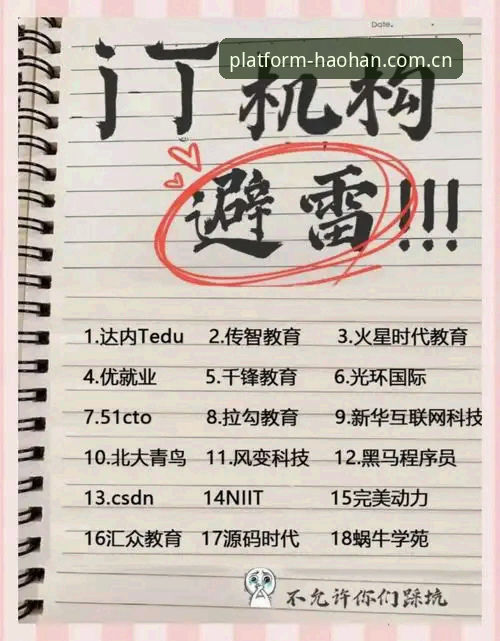 Date.
platform-haohan.com.cn
iT机构
避雷!!!
1.达内Tedu 2.传智教育 3.火星时代教育
4.优就业 5.千锋教育 6.光环国际
7.51cto 8.拉勾教育 9.新华互联网科技
10.北大青鸟 11.风变科技 12.黑马程序员
13.csdn 14NIIT 15完美动力
16汇众教育 17源码时代 18蜗牛学苑
不允许你们踩坑